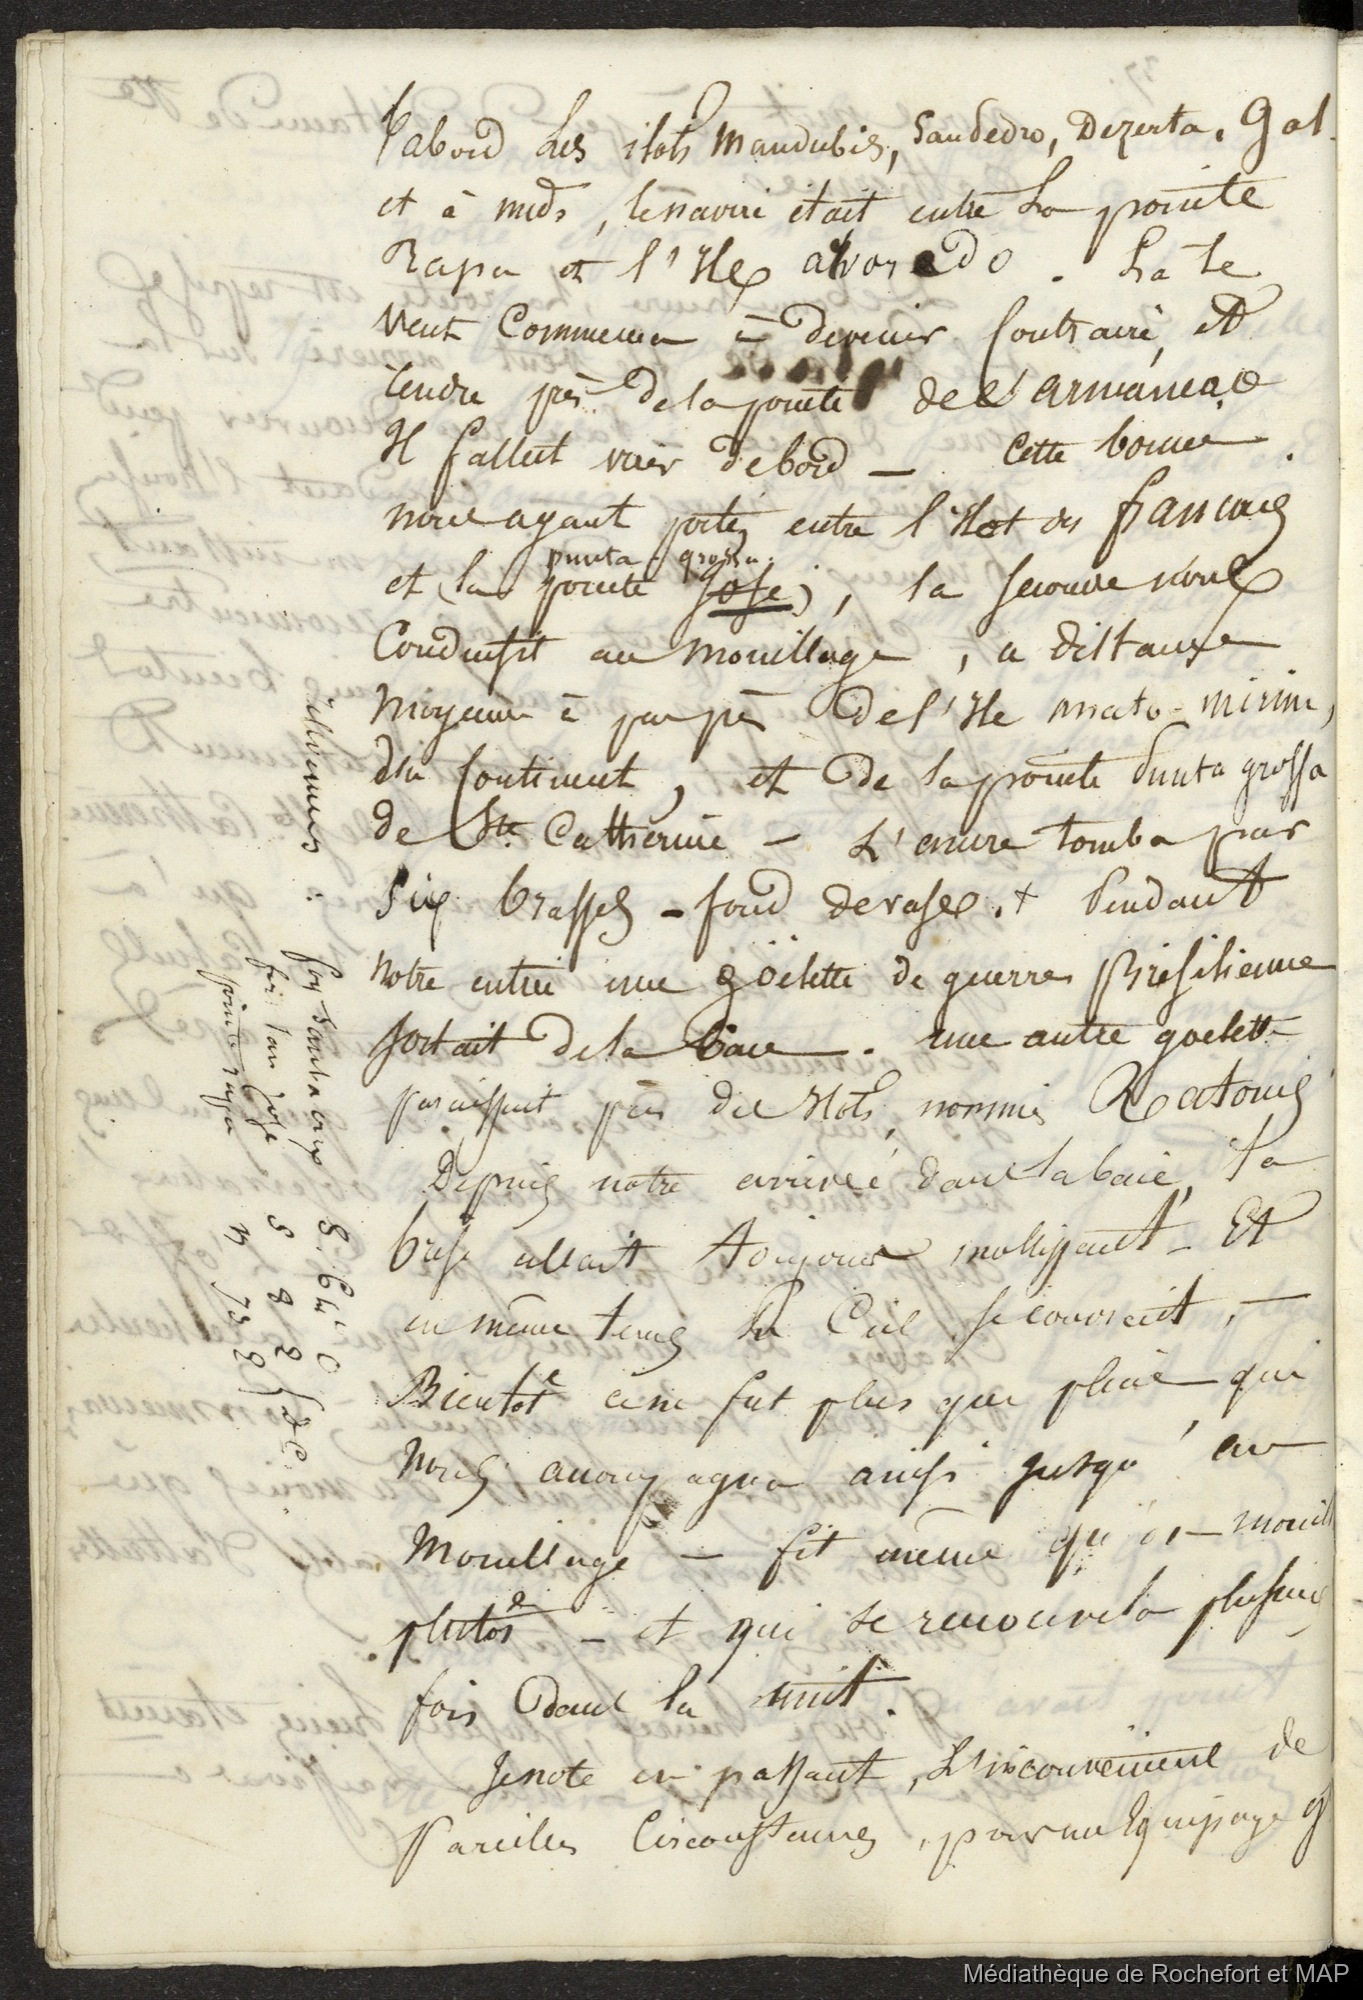 D'abord Les ilots Mandubis, San Pedro, Dezerta, Gal
et à midi, le navire était entre La pointe
Rapa et l'Ile alvoredo. La le
vent Commença à devenir Contraire, et
rendu près de la pointe de l'armança
Il fallut virer de bord — Cette bordée
nous ayant portés entre l'Ilot des français
punta grossa
et (la pointe Jose), la seconde nous
Conduisit au mouillage, a distance
moyenne à peu près de l'Ile mato-mirim,
du Continent, et de la pointe Punta grossa
de Ste Catherine — L'ancre tomba par
Six brasses - fond de vase. + Pendant
notre entrée une goëlette de guerre Brésilienne
sortait de la baie. une autre goelette
paraissait près des Ilots, nommés Ratones
Depuis notre arrivée dans la baie, la
brise allait toujours mollissant - Et
en même tems Le Ciel se couvrait, —
Bientôt ce ne fut plus que pluie, qui
Nous accompagna ainsi jusqu'au
Mouillage — fit même qu'on mouill
plutôt — et qui se renouvela plusieurs
fois dans la nuit.
Je note en passant, L'inconvénient de
Pareilles Circonstances, pour un Equipage q
relèvemens :
fort Santa cruz S. 6d. O
fort San José S 8 E
pointe rapa N 73 E
Médiathèque de Rochefort et MAP